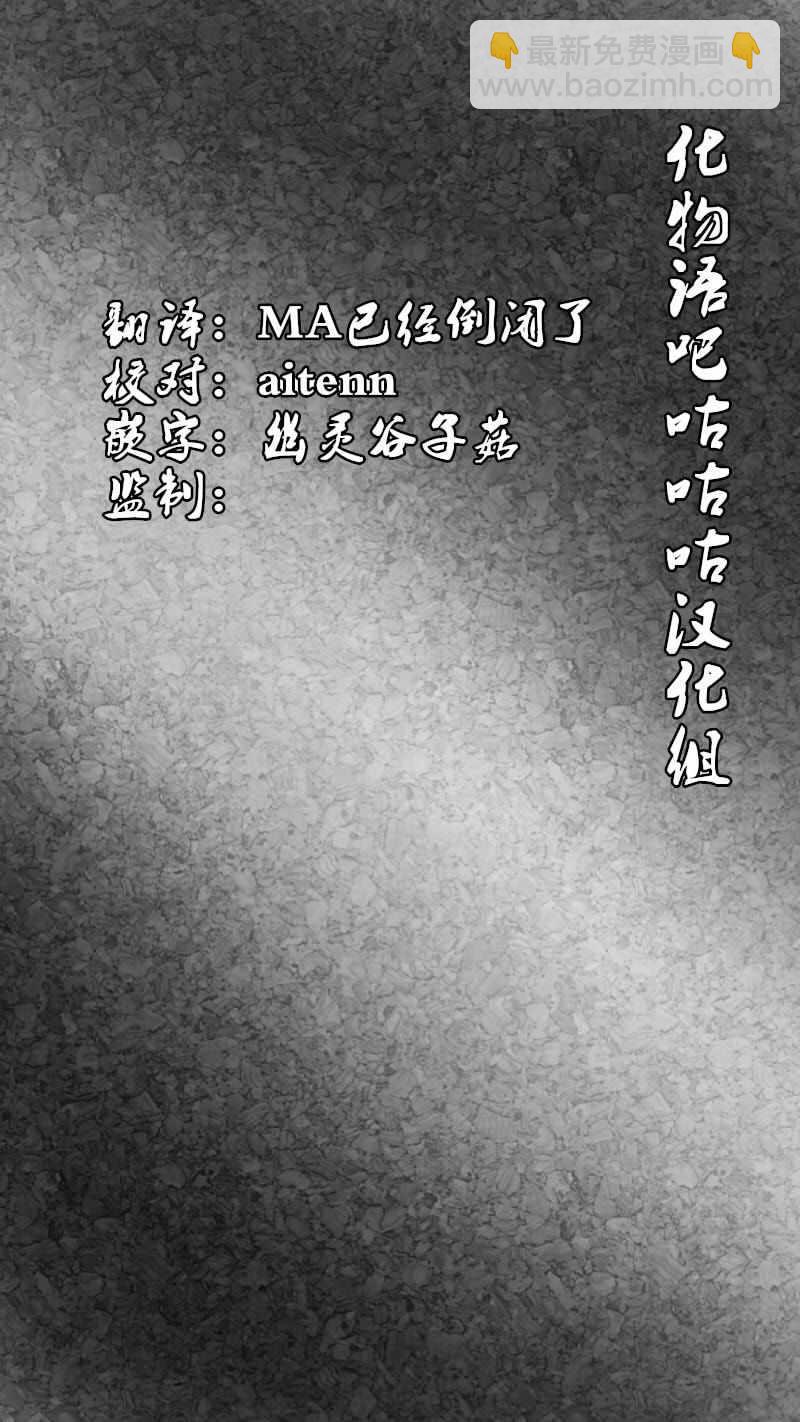 👇最新免费漫画👇
www.baozimh.com
化物语吧咕咕咕汉化组
翻译：MA已经倒闭了
校对：aitenn
嵌字：幽灵谷子菇
监制：